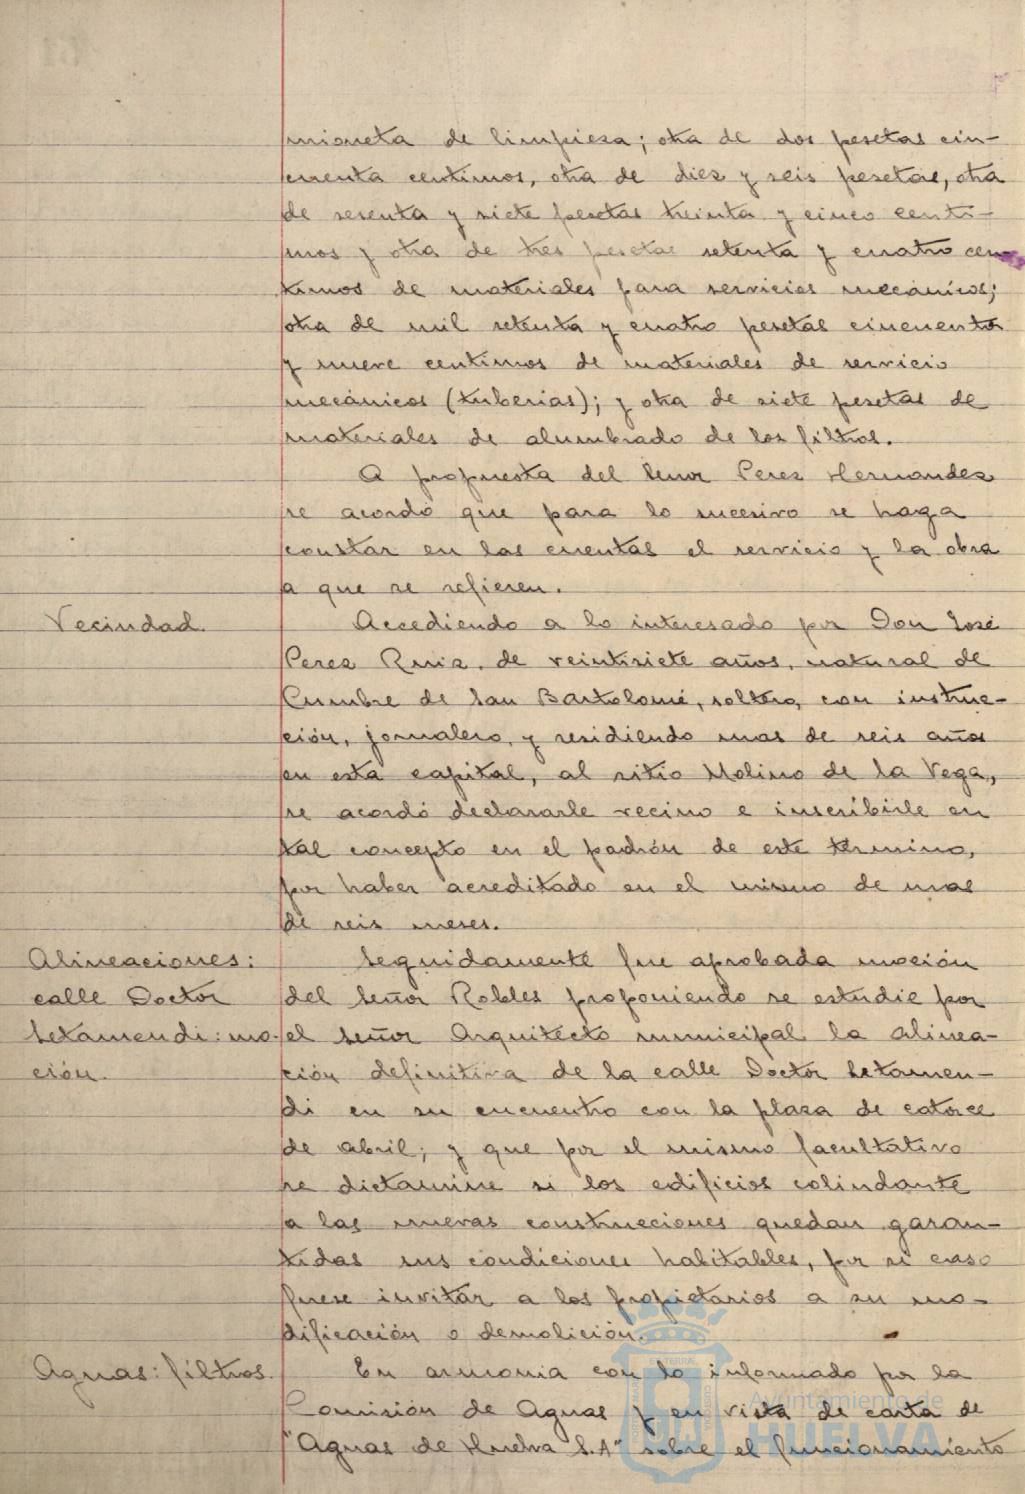 mioneta de limpieza; otra de dos pesetas cin-
cuenta centimos, otra de diez y seis pesetas, otra
de sesenta y siete pesetas treinta y cinco centi-
mos y otra de tres pesetas setenta y cuatro cen
timos de materiales para servicios mecánicos;
otra de mil setenta y cuatro pesetas cincuenta
y nueve centimos de materiales de servicio
mecánicos (tuberias); y otra de siete pesetas de
materiales de alumbrado de los filtros.
A propuesta del Señor Perez Hernandez
se acordó que para lo sucesivo se haga
constar en las cuentas el servicio y la obra
a que se refieren.
Vecindad. Accediendo a lo interesado por Don José
Perez Ruiz, de veintisiete años, natural de
Cumbre de San Bartolomé, soltero, con instruc-
ción, jornalero, y residiendo mas de seis años
en esta capital, al sitio Molino de la Vega,
se acordó declararle vecino e inscribirle en
tal concepto en el padrón de este término,
por haber acreditado en el mismo de mas
de seis meses.
Alineaciones: Seguidamente fue aprobada moción
calle Doctor del Señor Robles proponiendo se estudie por
Letamendi: mo- el Señor Arquitecto municipal la alinea-
ción. ción definitiva de la calle Doctor Letamen-
di en su encuentro con la plaza de catorce
de abril; y que por el mismo facultativo
se dictamine si los edificios colindante
a las nuevas construcciones quedan garan-
tidas sus condiciones habitables, por si caso
fuese invitar a los propietarios a su mo-
dificación o demolición.
Aguas: filtros. En armonia con lo informado por la
Comisión de Aguas y en vista de carta de
"Aguas de Huelva S.A" sobre el funcionamiento
Ayuntamiento de
HUELVA